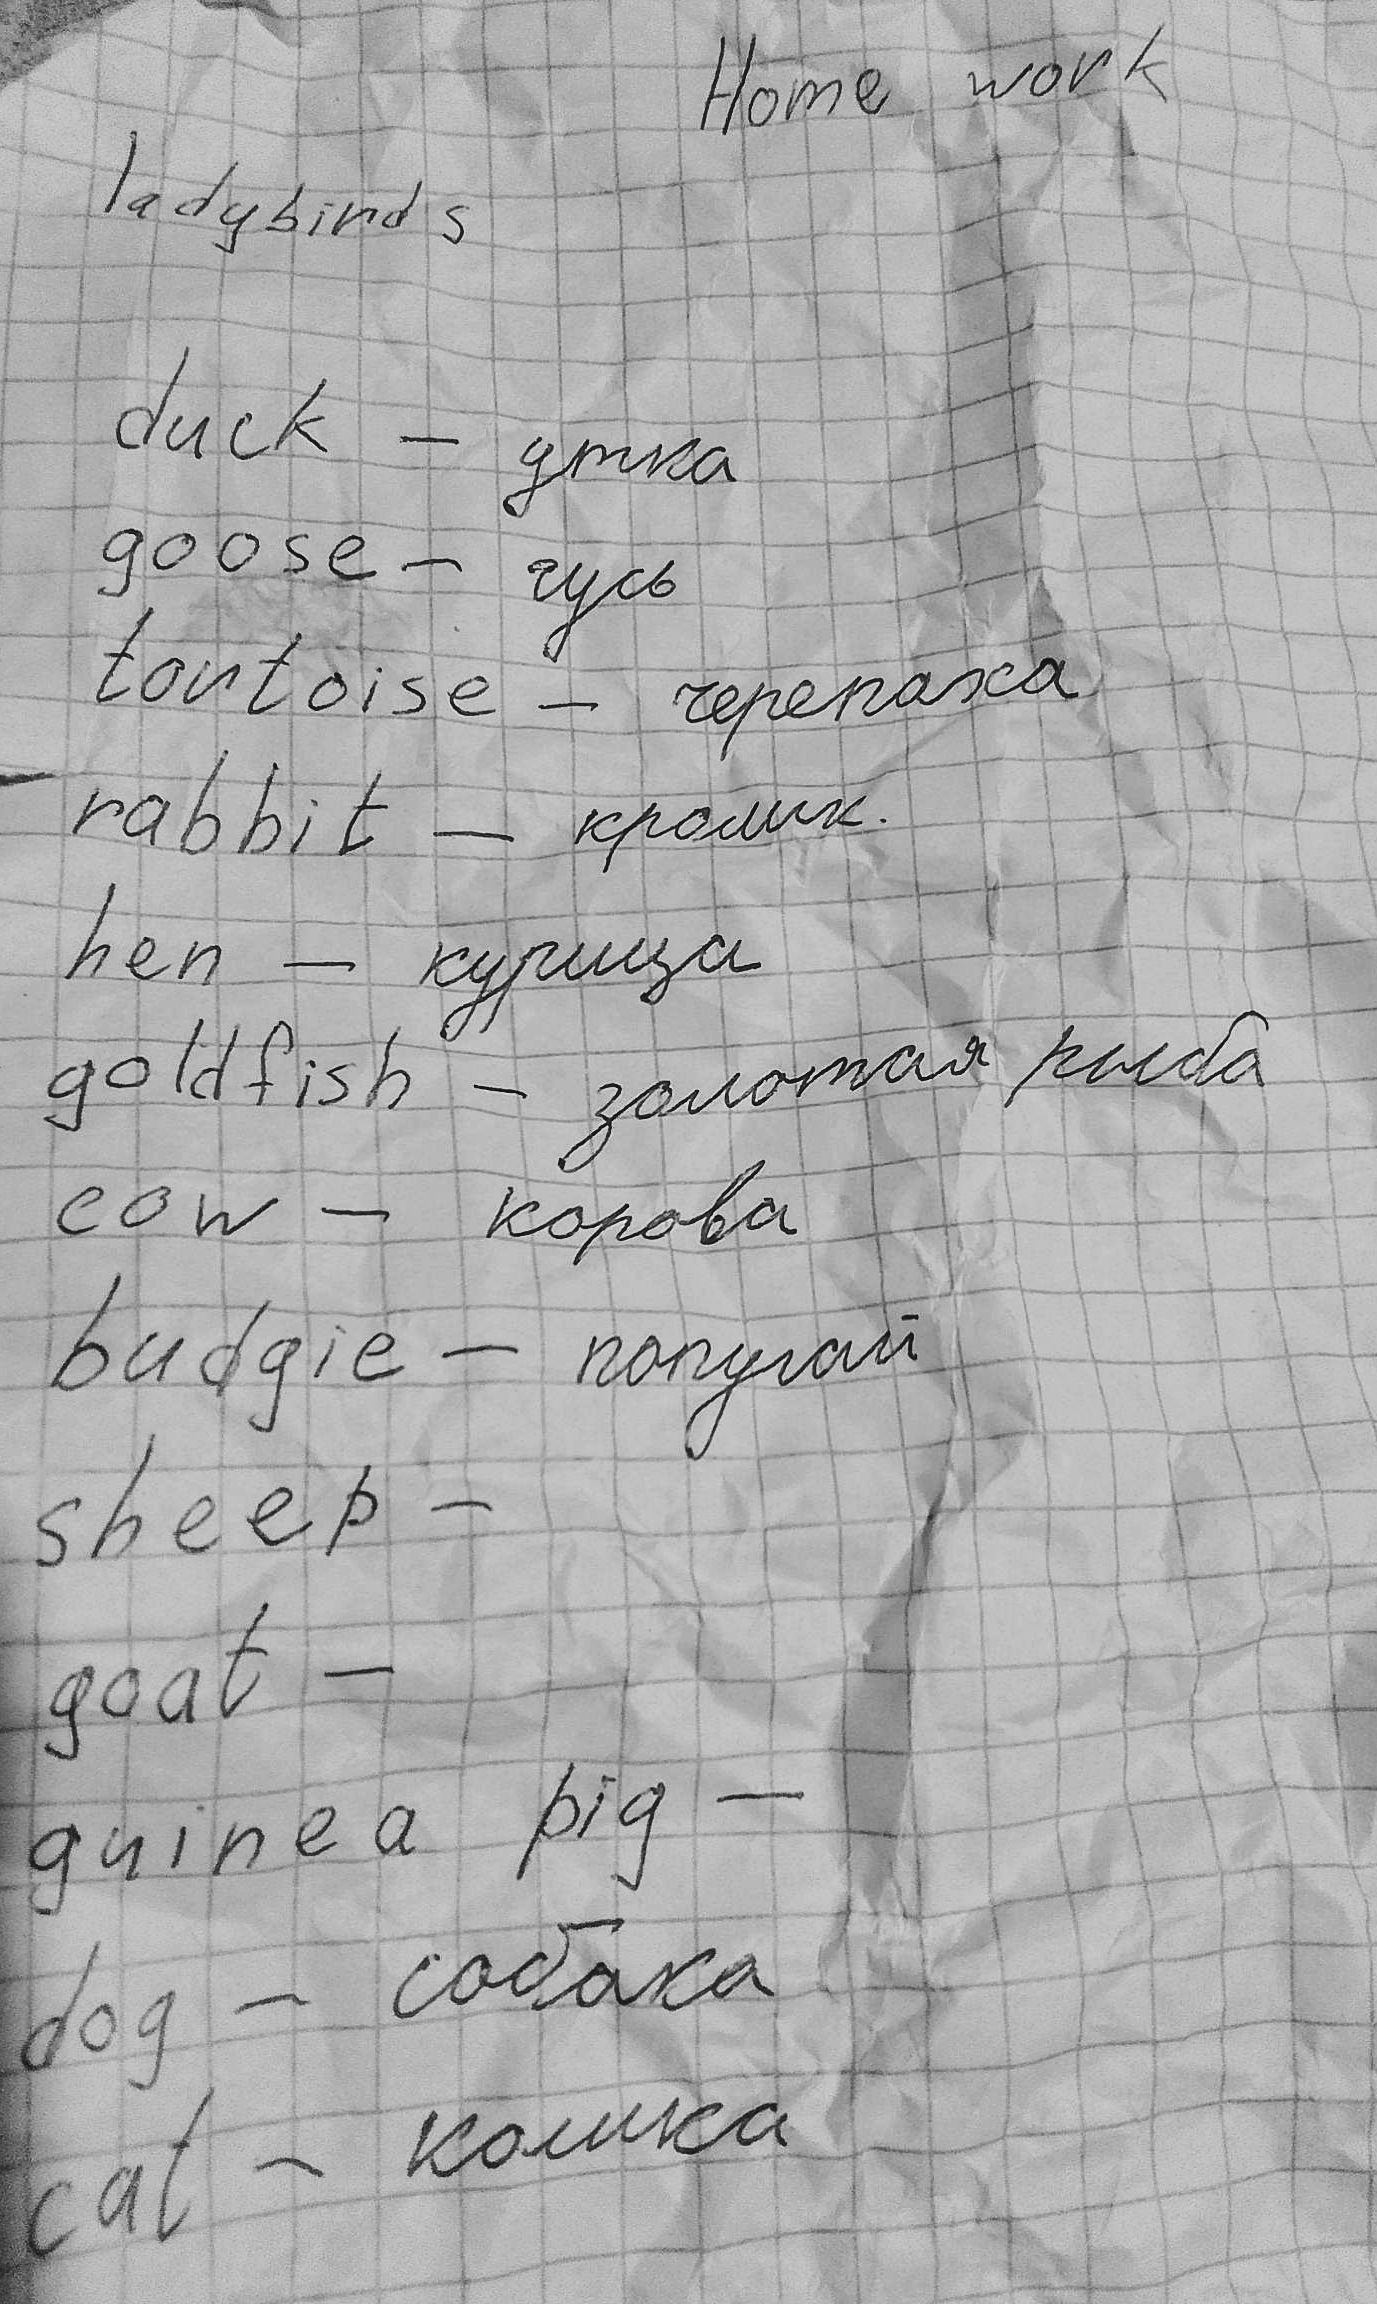 Home work
ladybirds
duck – утка
goose – гусь
tortoise – черепаха
rabbit – кролик.
hen – курица
goldfish – золотая рыба
cow – корова
budgie – попугай
sheep –
goat –
guinea pig –
dog – собака
cat – кошка